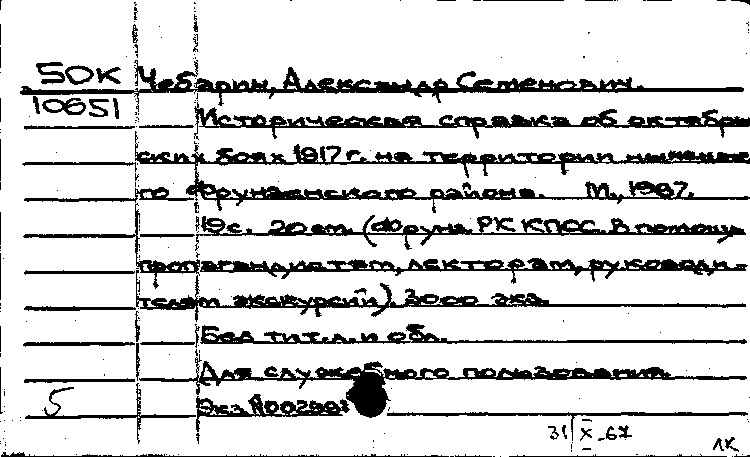 50К Чебарин, Александр Семенович.
10651 Историческая справка об октябрь
ских боях 1917 г. на территории нынешне
го Фрунзенского района. М., 1967.
19 с. 20 см. (Фрунз. РК КПСС. В помощь
пропагандистам, лекторам, руководи-
телям экскурсий). 3000 экз.
Без тит. л. и обл.
Для служебного пользования.
5 Экз.
31 X-67
ЛК